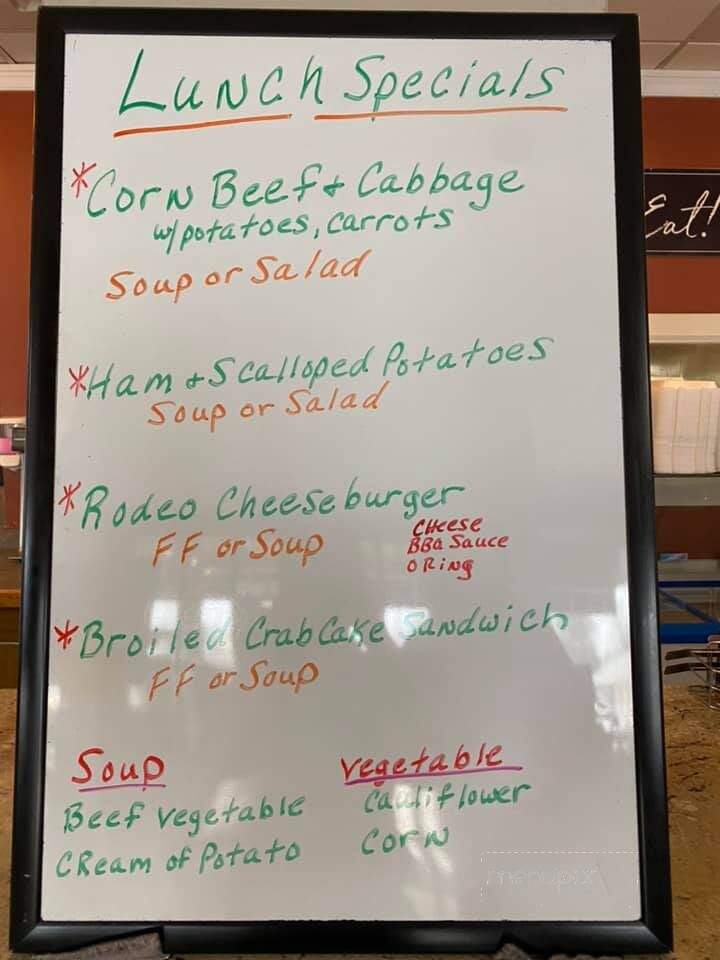 Lunch Specials
*Corn Beef + Cabbage
w/potatoes, carrots
Soup or Salad
*Ham + Scalloped Potatoes
Soup or Salad
*Rodeo Cheeseburger
FF or Soup
Cheese
BBQ Sauce
O Ring
*Broiled Crab Cake Sandwich
FF or Soup
Soup
Beef Vegetable
Cream of Potato
Vegetable
Cauliflower
Corn
Eat!
menupix